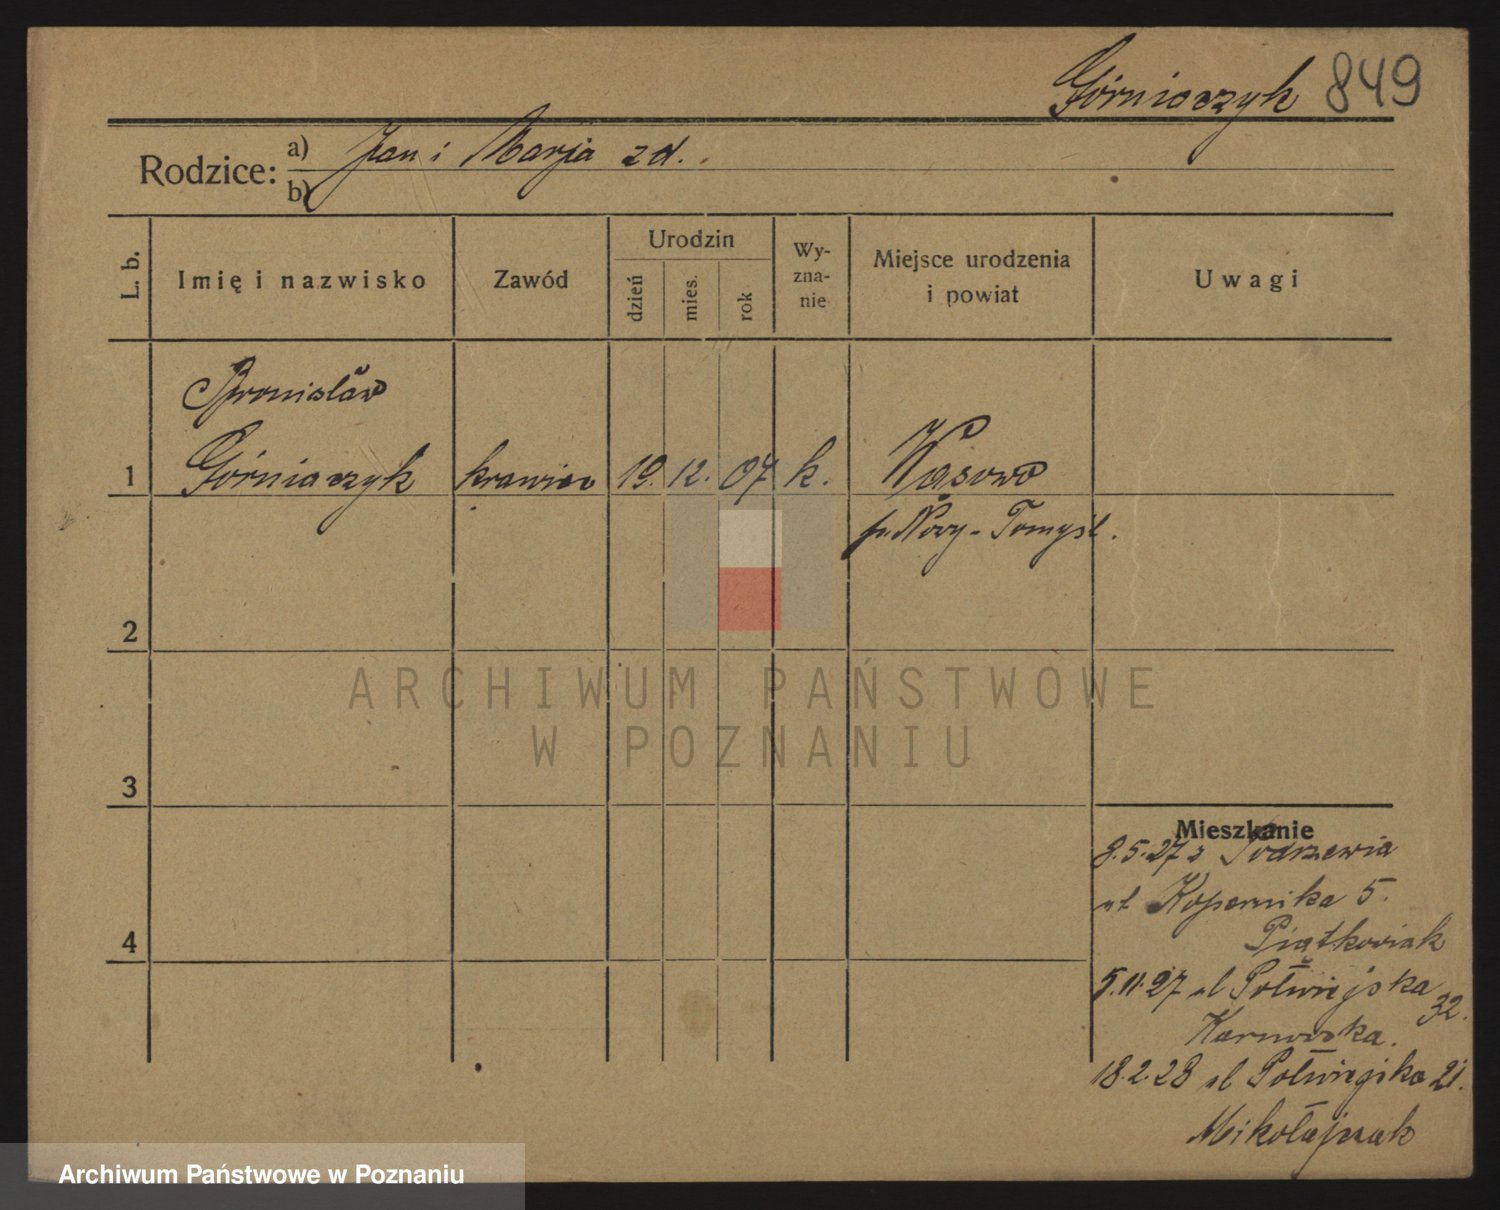 Górniaczyk 849
Rodzice: a) Jan i Marja zd.
b)
L. b.
Imię i nazwisko
Zawód
Urodzin
dzień
mies.
rok
Wy-
zna-
nie
Miejsce urodzenia
i powiat
Uwagi
Bronisław
1 Górniaczyk krawiec 19. 12. 07 k. Wąsowo
p. Nowy-Tomyśl.
2
ARCHIWUM PAŃSTWOWE
W POZNANIU
3
Mieszkanie
8.5.27 z Podrzewia
ul Kopernika 5.
4
Piątkowiak
5.11.27 ul Półwiejska 32.
Karnowska.
18.2.28 ul Półwiejska 21.
Mikołajczak
Archiwum Państwowe w Poznaniu